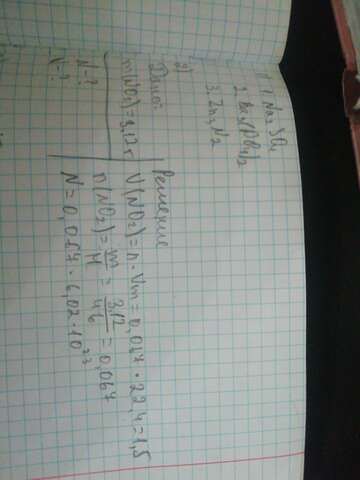 1. Na₂SO₄
3. Zn₃N₂
2)
Дано:
m(NO₂)=3,12 г
N-?
V-?
Решение
V(NO₂)=n·Vm=0,067·22,4=1,5
n(NO₂)=m/M=3,12/46=0,067
N=0,067·6,02·10²³